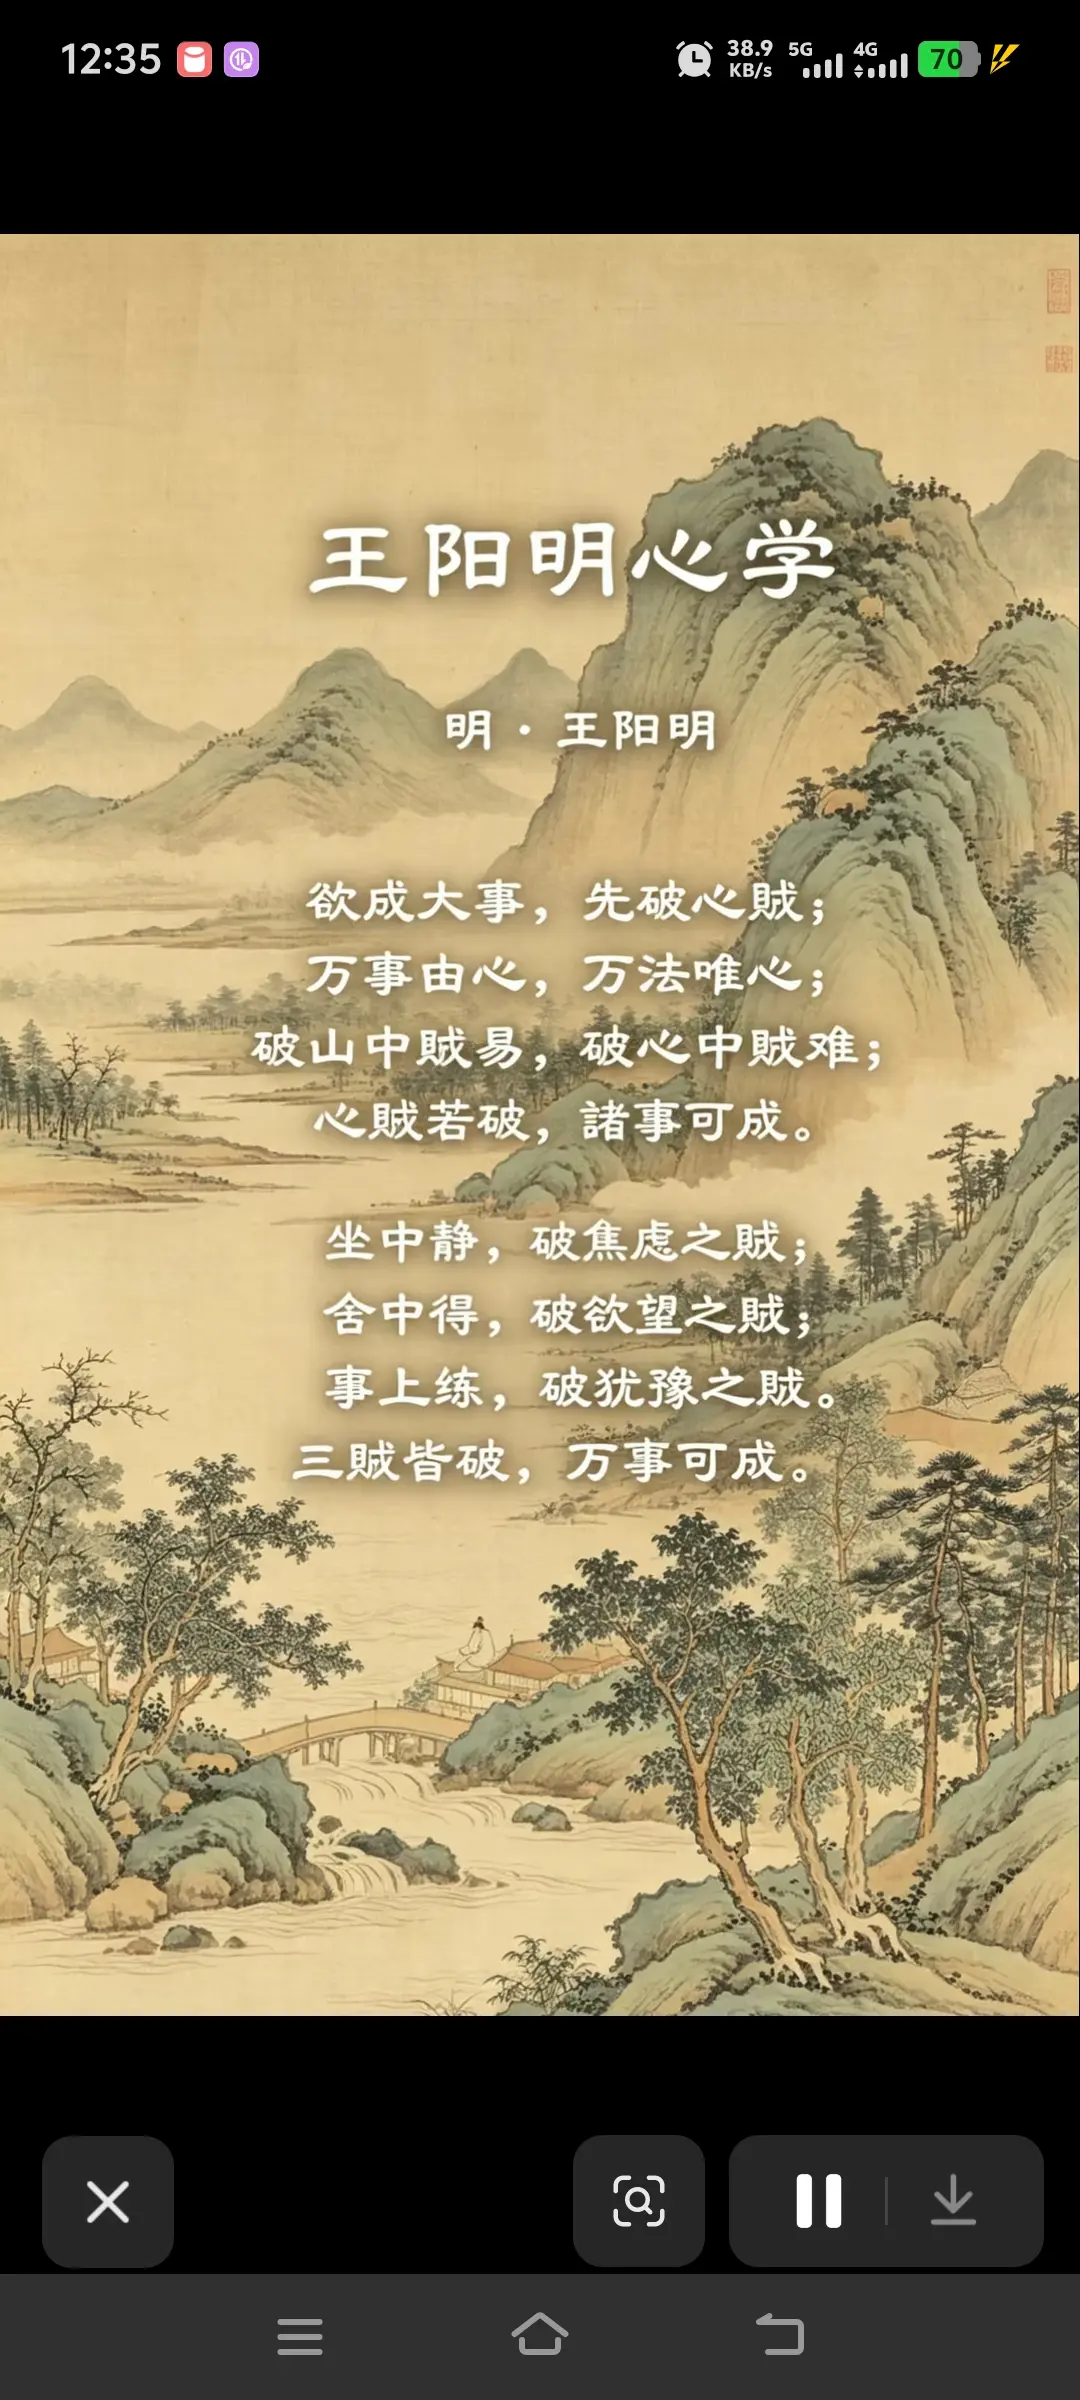 12:35
38.9 KB/s 5G 4G 70
王阳明心学
明·王阳明
欲成大事，先破心贼；
万事由心，万法唯心；
破山中贼易，破心中贼难；
心贼若破，諸事可成。
坐中静，破焦虑之贼；
舍中得，破欲望之贼；
事上练，破犹豫之贼。
三贼皆破，万事可成。